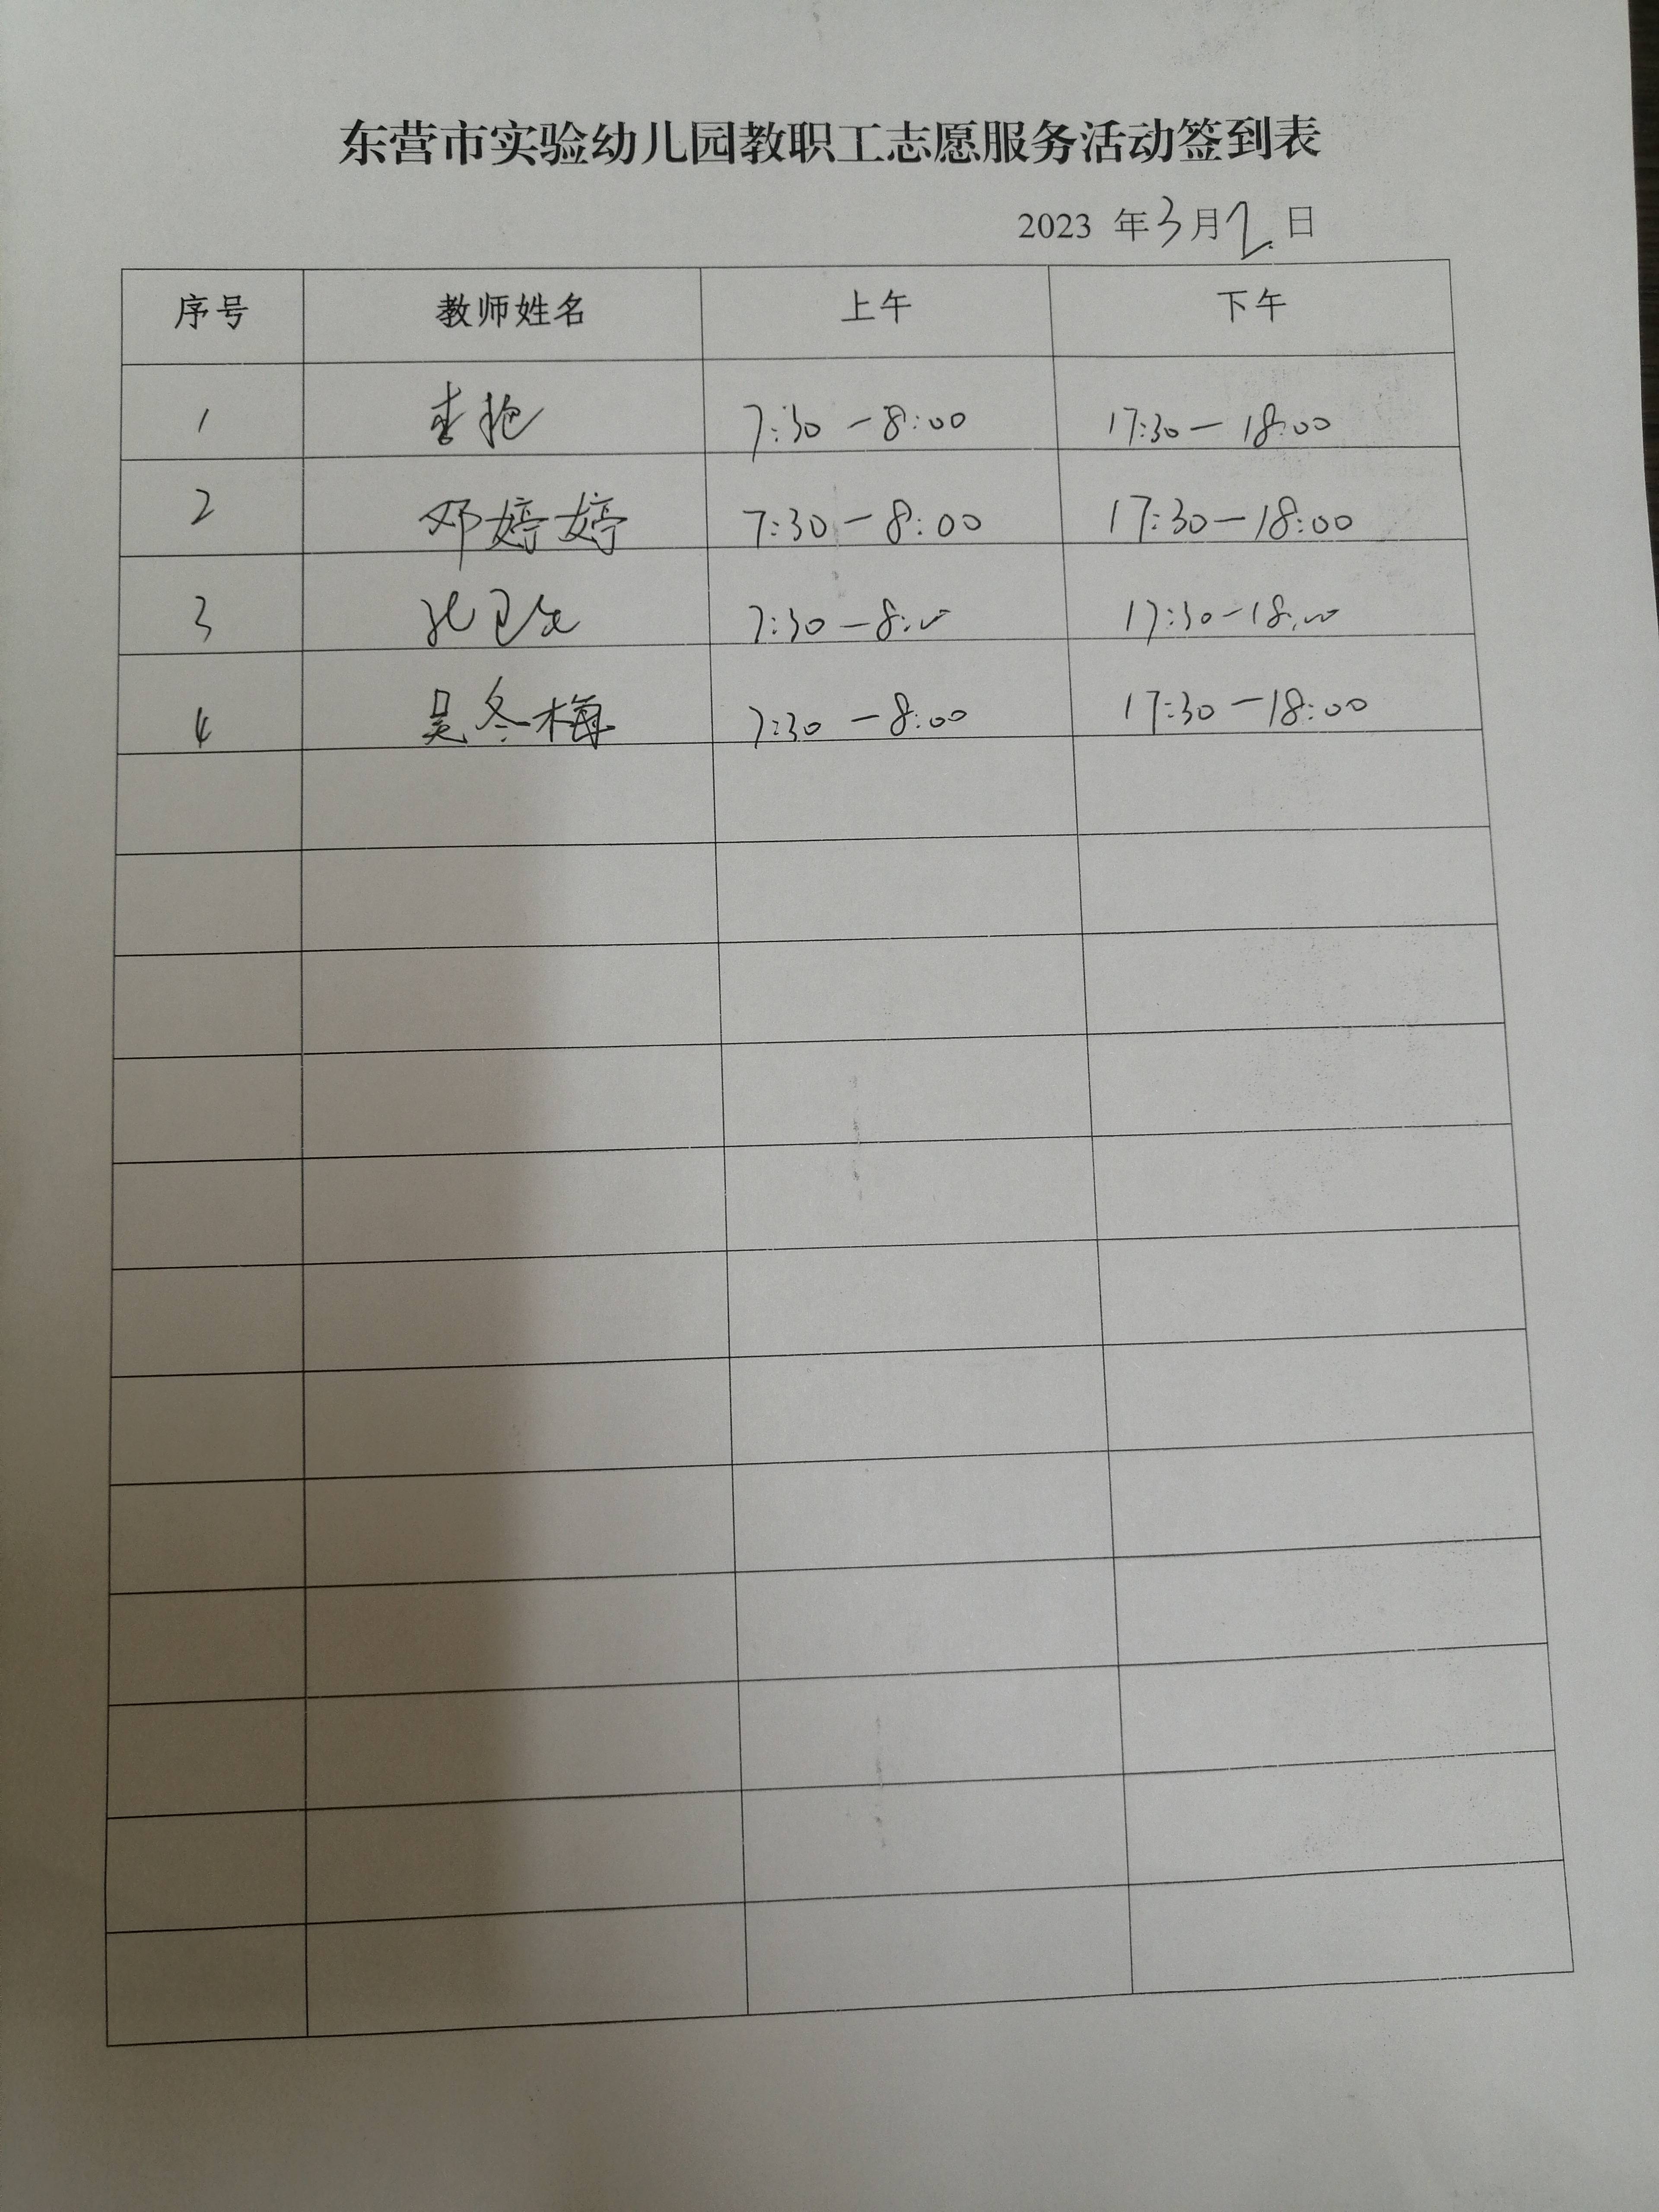 东营市实验幼儿园教职工志愿服务活动签到表
2023 年3月2日
序号 教师姓名 上午 下午
1 李艳 7:30—8:00 17:30—18:00
2 邓婷婷 7:30—8:00 17:30—18:00
3 7:30—8:00 17:30—18:00
4 吴冬梅 7:30—8:00 17:30—18:00